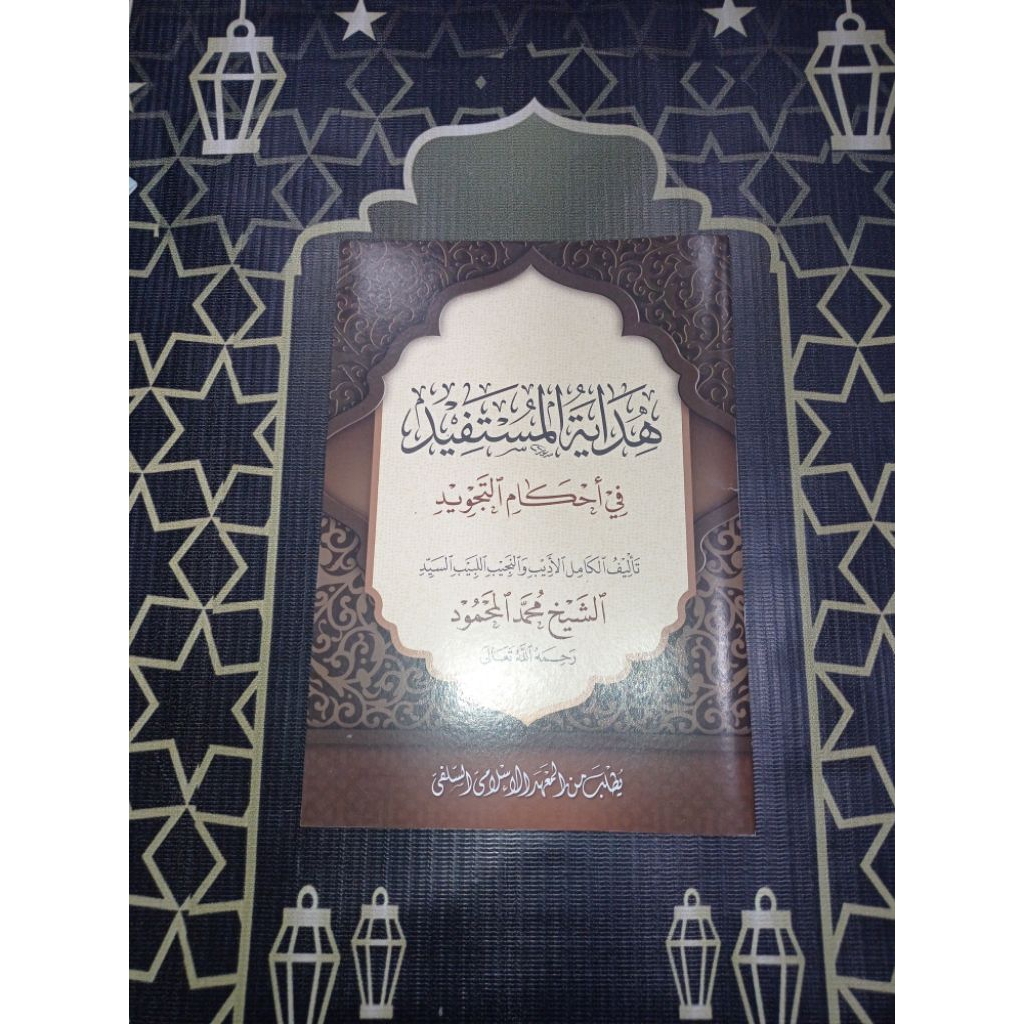 هِدَايَةُ المُسْتَفِيْدِ
فِيْ أَحْكَامِ التَّجْوِيْدِ
تَأْلِيْفُ الكَامِلِ الأَدِيْبِ وَالنَّجِيْبِ اللَّبِيْبِ السَّيِّدِ
الشَّيْخ مُحَمَّد المَحْمُوْد
رَحِمَهُ اللّٰهُ تَعَالَى
يُطْلَبُ مِنَ المَعْهَدِ الإِسْلَامِى السَّلَفِى